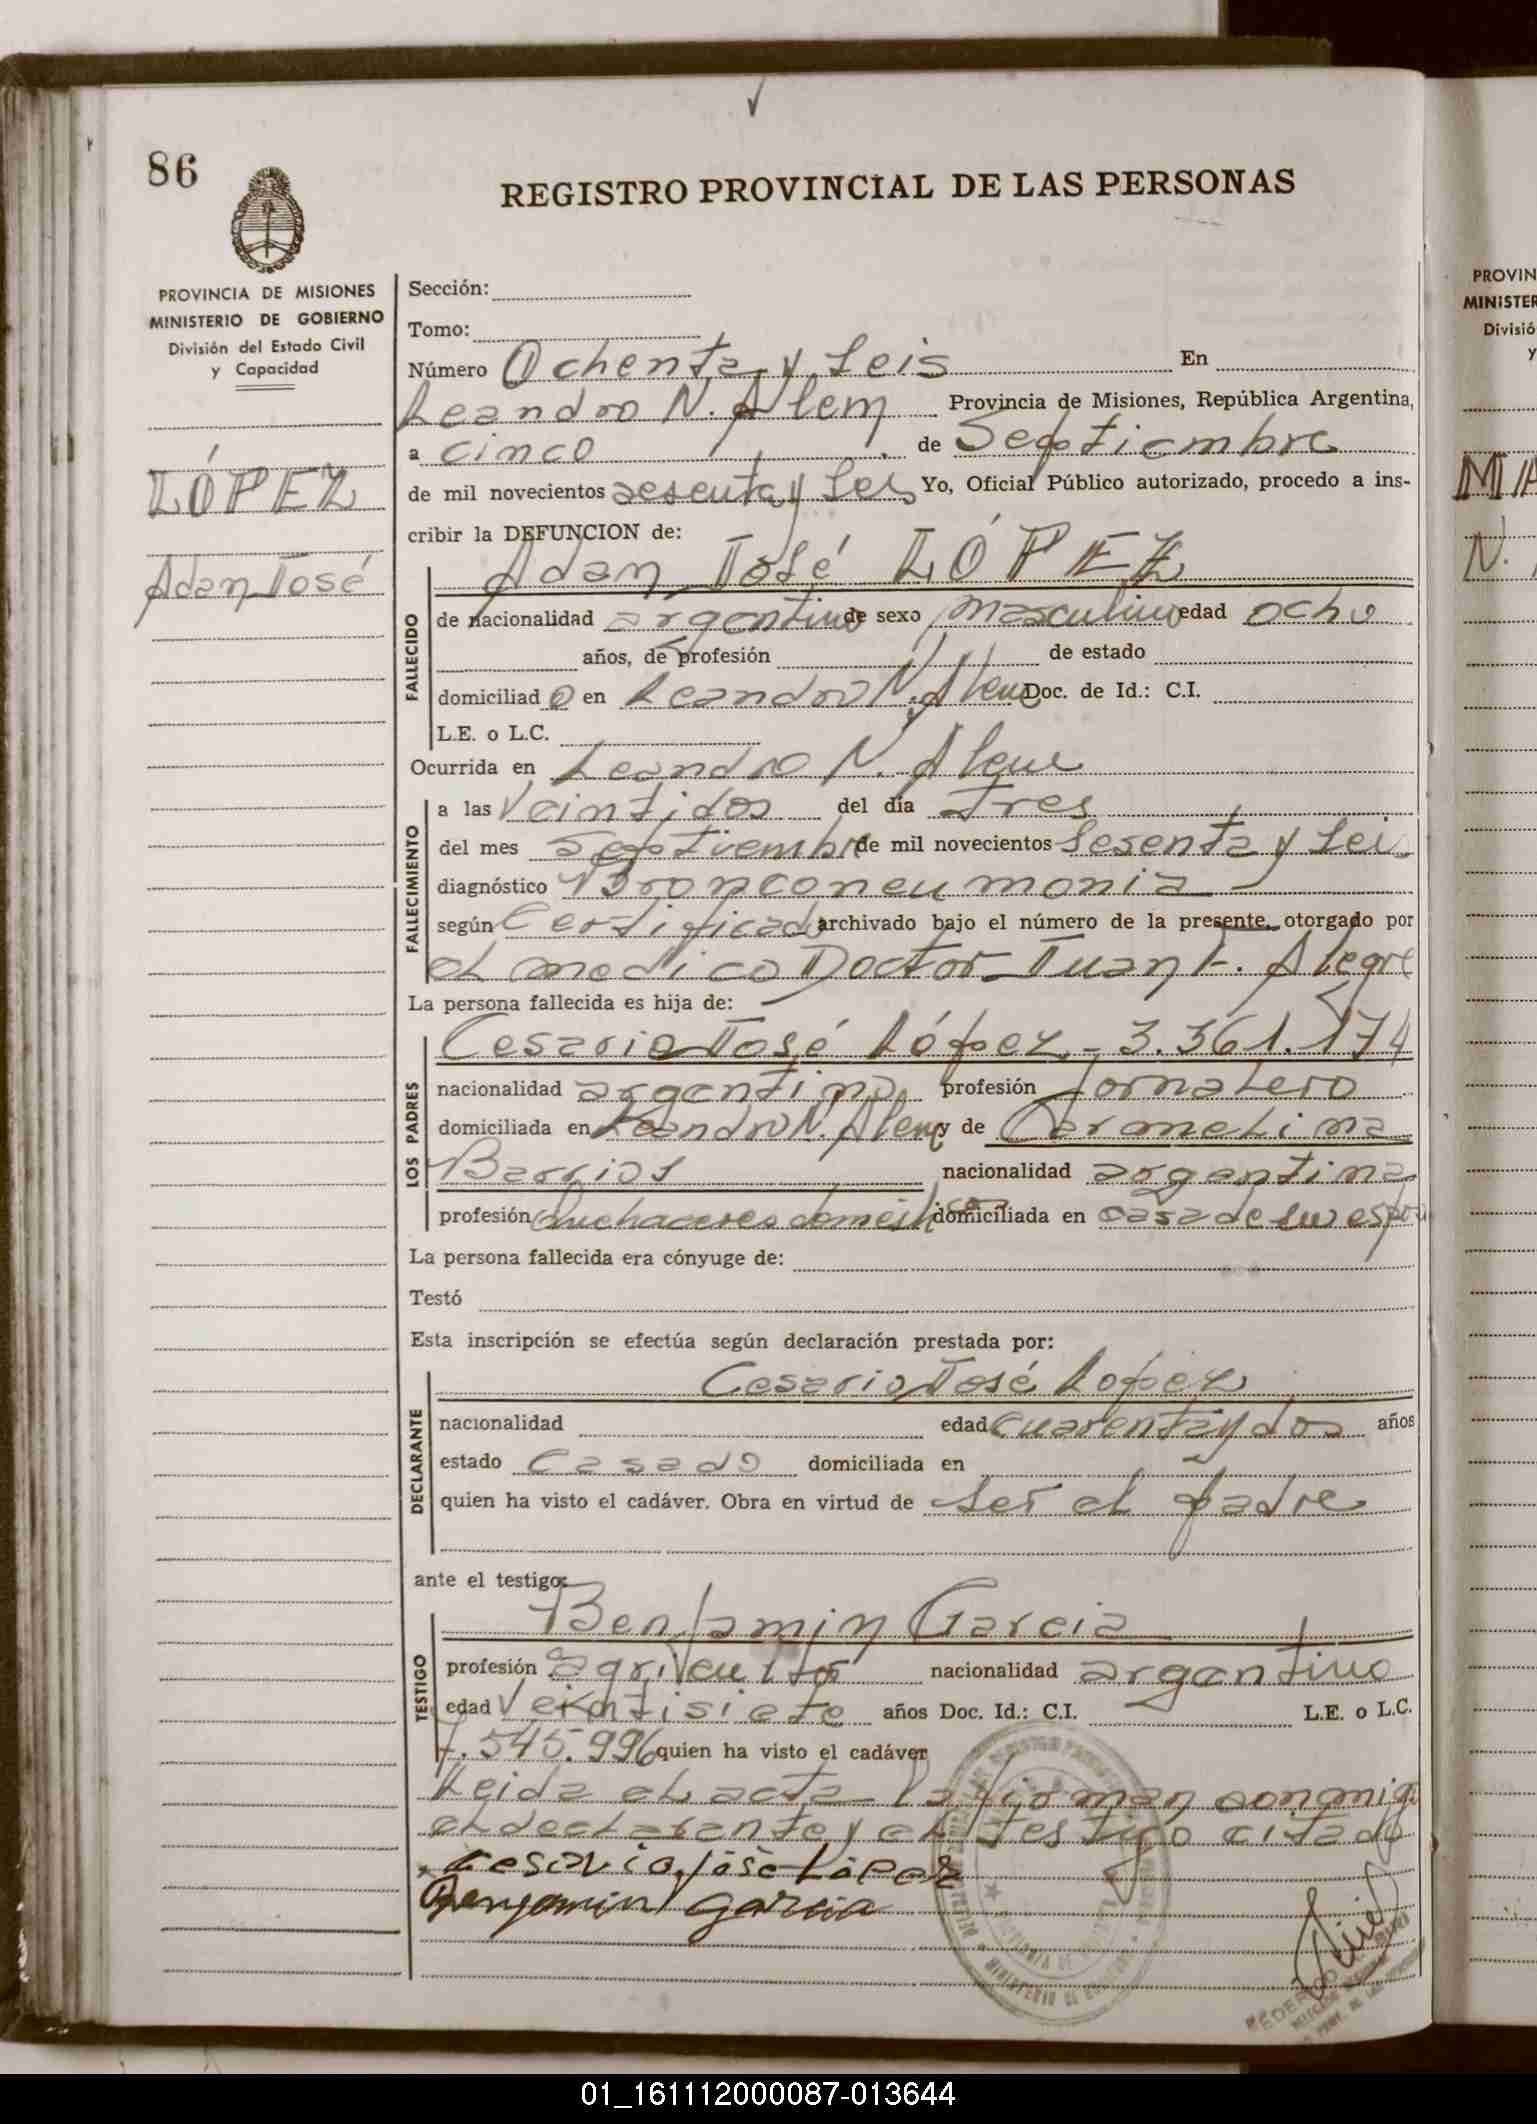 86
REGISTRO PROVINCIAL DE LAS PERSONAS
PROVINCIA DE MISIONES
MINISTERIO DE GOBIERNO
División del Estado Civil
y Capacidad
LÓPEZ
Adan José
Sección:
Tomo:
Número Ochenta y Seis En
Leandro N. Alem Provincia de Misiones, República Argentina,
a cinco de Septiembre
de mil novecientos sesenta y Seis Yo, Oficial Público autorizado, procedo a ins-
cribir la DEFUNCION de:
Adan José LÓPEZ
FALLECIDO
de nacionalidad argentino de sexo masculino edad ocho
años, de profesión de estado
domiciliado en Leandro N. Alem Doc. de Id.: C.I.
L.E. o L.C.
Ocurrida en Leandro N. Alem
FALLECIMIENTO
a las Veintidos del día tres
del mes Septiembre de mil novecientos Sesenta y Seis
diagnóstico Bronconeumonia
según Certificado archivado bajo el número de la presente, otorgado por
el medico Doctor Juan F. Alegre
La persona fallecida es hija de:
LOS PADRES
Cesario José López - 3.361.174
nacionalidad argentina profesión Jornalero
domiciliada en Leandro N. Alem y de Carmelina
Barrios nacionalidad argentina
profesión Quehaceres domésticos domiciliada en casa de su esposo
La persona fallecida era cónyuge de:
Testó
Esta inscripción se efectúa según declaración prestada por:
DECLARANTE
Cesario José Lopez
nacionalidad edad cuarenta y dos años
estado Casado domiciliada en
quien ha visto el cadáver. Obra en virtud de Ser el padre
ante el testigo:
TESTIGO
Benjamin Garcia
profesión agricultor nacionalidad argentino
edad Veintisiete años Doc. Id.: C.I. L.E. o L.C.
7.545.996 quien ha visto el cadáver
Leida el acta la firman conmigo
el declarante y el testigo citado
Cesario José López
Benjamin Garcia
PROVIN
MINISTER
Divisió
y
MA
N.
01_161112000087-013644